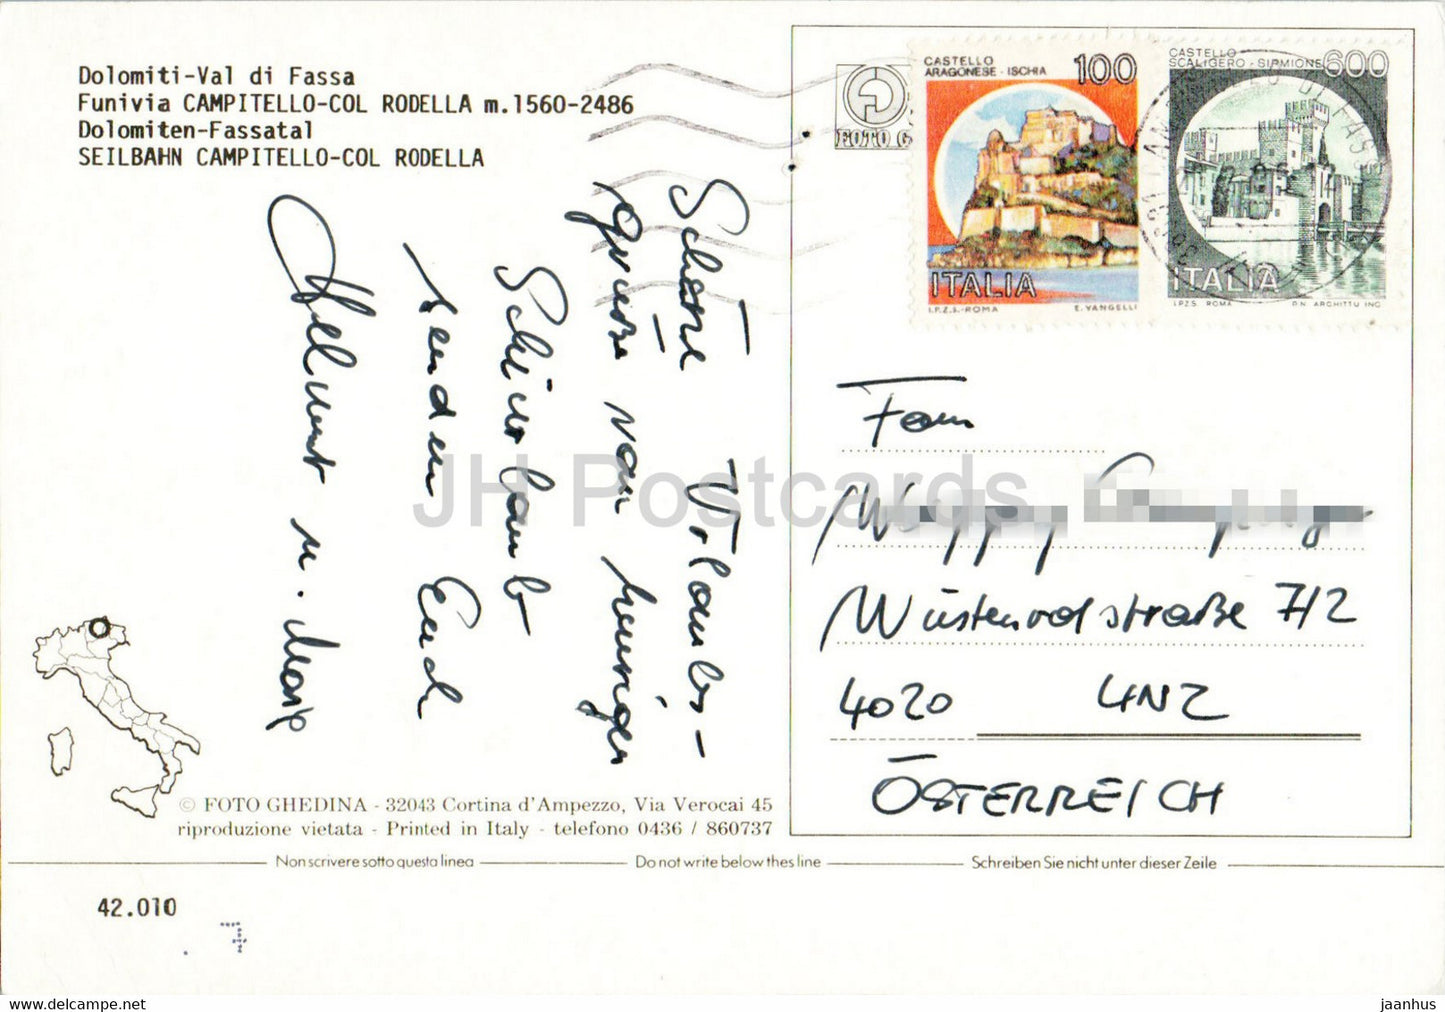 Dolomiti-Val di Fassa
Funivia CAMPITELLO-COL RODELLA m.1560-2486
Dolomiten-Fassatal
SEILBAHN CAMPITELLO-COL RODELLA
Schöne Urlaubs-
grüße von
senden Euch
Helmut u.
FOTO G
CASTELLO
ARAGONESE - ISCHIA
100
ITALIA
I.P.Z.S.-ROMA
E. VANGELLI
CASTELLO
SCALIGERO - SIRMIONE
600
ITALIA
I.P.Z.S. ROMA
P.N. ARCHITTU INC.
Fam
4020 LINZ
ÖSTERREICH
© FOTO GHEDINA - 32043 Cortina d'Ampezzo, Via Verocai 45
riproduzione vietata - Printed in Italy - telefono 0436 / 860737
Non scrivere sotto questa linea
Do not write below thes line
Schreiben Sie nicht unter dieser Zeile
42.010
7
JH Postcards
jaanhus - www.delcampe.net